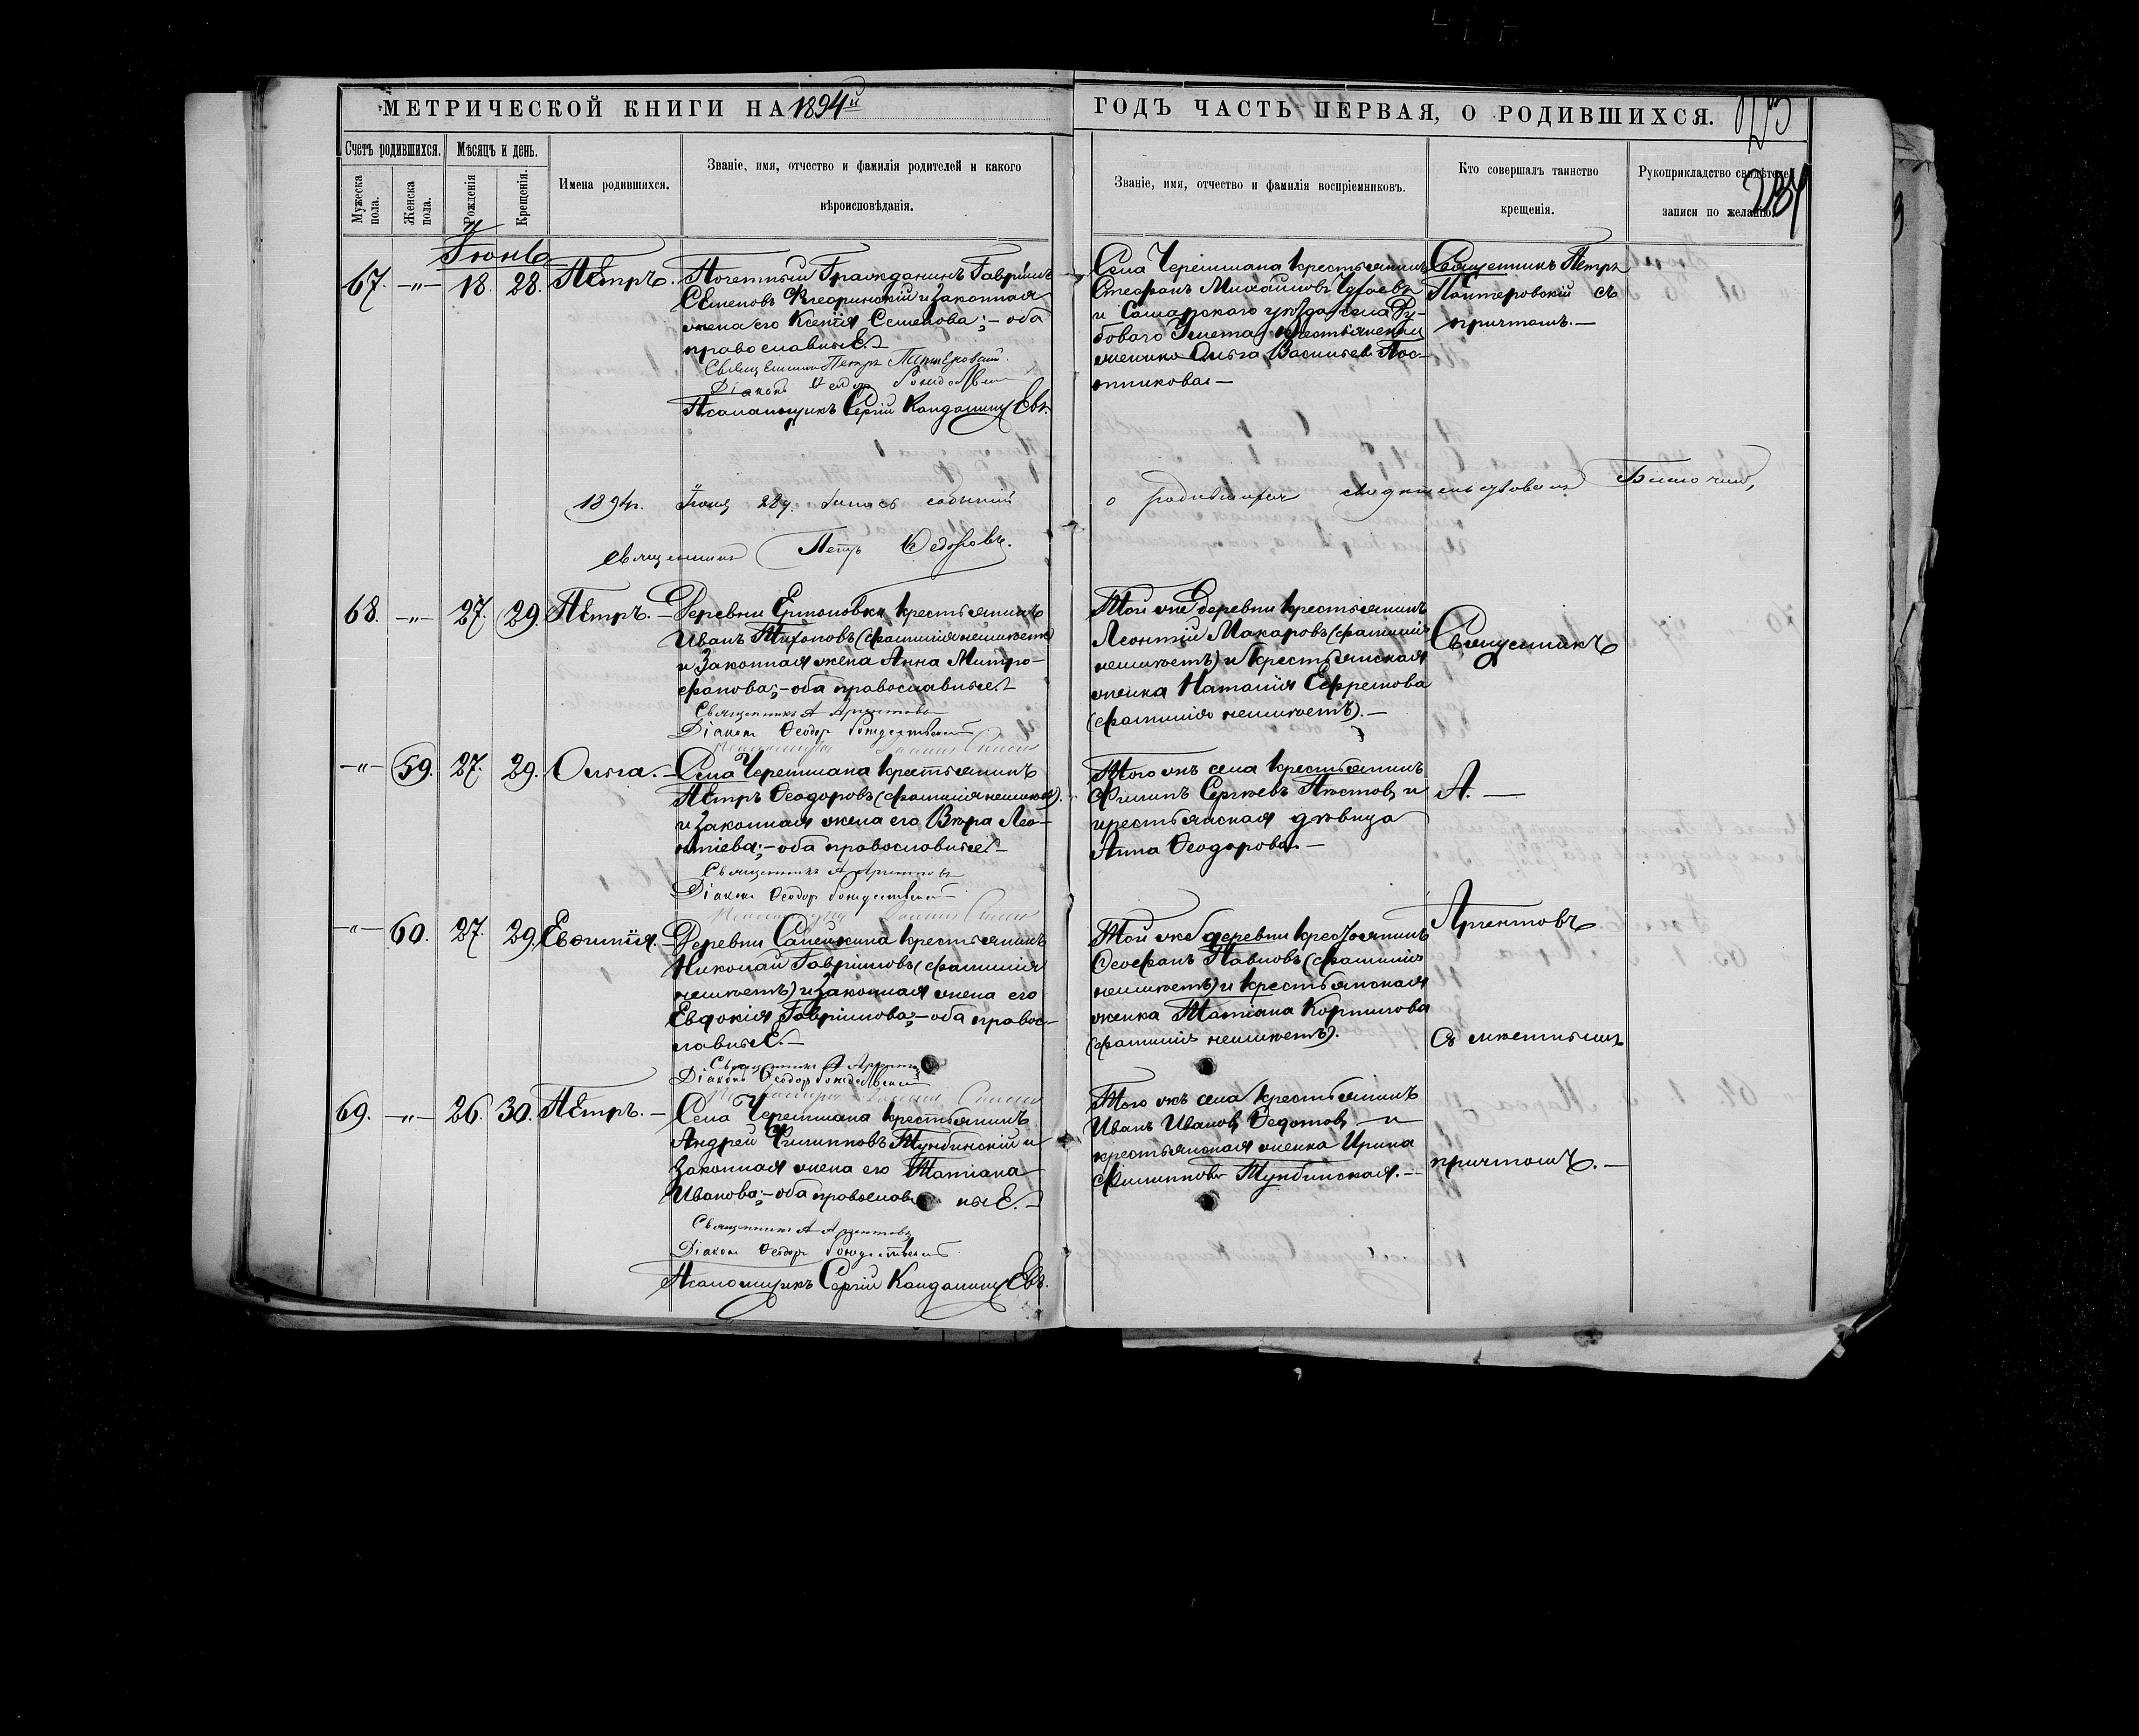 МЕТРИЧЕСКОЙ КНИГИ НА 1894й
ГОДЪ ЧАСТЬ ПЕРВАЯ, О РОДИВШИХСЯ.
284
Счетъ родившихся.
Мѣсяцъ и день.
Имена родившихся.
Званіе, имя, отчество и фамилія родителей и какого
вѣроисповѣданія.
Мужеска пола.
Женска пола.
Рожденія
Крещенія.
Званіе, имя, отчество и фамилія воспріемниковъ.
Кто совершалъ таинство
крещенія.
Рукоприкладство свидѣтелей
записи по желанію.
Іюнь
67. -"- 18. 28. Петръ.
Почетный Гражданинъ Гавріилъ
Семеновъ и законная
жена его Ксенія Семенова; - оба
православные.
Священникъ Петръ
Діаконъ
Псаломщикъ Сергій
Села Черемшана крестьянинъ
Стефанъ Михайловъ
и Самарскаго уѣзда села Ду-
боваго Умета крестьянская
женка Ольга Васильева Пос-
никова. -
Священникъ Петръ
съ
причтомъ. -
1894г. Іюня 28 д.
о родившихся свидетельствовалъ
священникъ Петръ Федоровъ.
68. -"- 27. 29. Петръ. -
Деревни Ермоловки крестьянинъ
Иванъ Тихоновъ (фамиліи неимѣетъ)
и законная жена Анна Митро-
фанова; - оба православные. -
Священникъ А Аргентовъ
Діаконъ Ѳеодоръ Рождественскій
Той же деревни крестьянинъ
Леонтій Макаровъ (фамиліи
неимѣетъ) и крестьянская
женка Наталія Ефремова
(фамиліи неимѣетъ). -
Священникъ
-"- 59. 27. 29. Ольга. -
Села Черемшана крестьянинъ
Петръ Ѳеодоровъ (фамиліи неимѣетъ).
и законная жена его Вѣра Лео-
нтіева; - оба православные. -
Священникъ А Аргентовъ
Діаконъ Ѳеодоръ Рождественскій
Того жъ села крестьянинъ
Филипъ Сергѣевъ и
крестьянская дѣвица
Анна Ѳеодорова. -
А. -
-"- 60. 27. 29. Евѳимія. -
Деревни крестьянинъ
Николай Гавріиловъ (фамиліи
неимѣетъ) и законная жена его
Евдокія Гавріилова; - оба правос-
лавные. -
Священникъ А
Діаконъ Ѳеодоръ Рождественскій
Той же деревни крестьянинъ
Ѳеофанъ Павловъ (фамиліи
неимѣетъ) и крестьянская
женка Татіана Корнилова
(фамиліи неимѣетъ).
Аргентовъ
съ мѣстнымъ
69. -"- 26. 30. Петръ. -
Села Черемшана крестьянинъ
Андрей Филипповъ Тунбинскій и
законная жена его Татіана
Иванова; - оба православные. -
Священникъ А Аргентовъ
Діаконъ Ѳеодоръ Рождественскій
Псаломщикъ Сергій
Того жъ села крестьянинъ
Иванъ Ивановъ Ѳедотовъ и
крестьянская женка Ирина
Филиппова Тунбинская. -
причтомъ. -